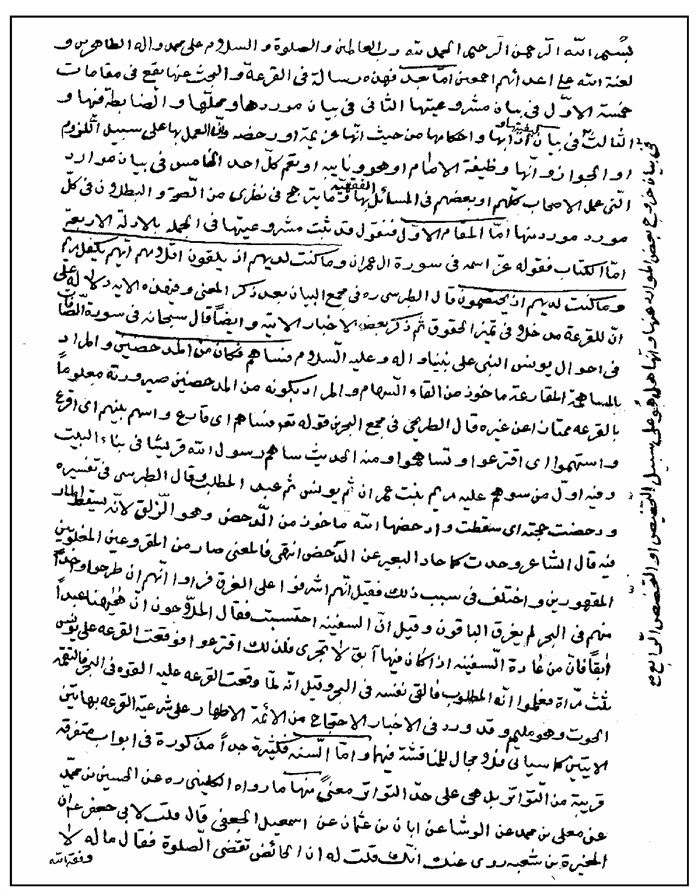 بسم الله الرحمن الرحيم الحمد لله رب العالمين والصلوة والسلام على محمد واله الطاهرين و
لعنة الله على اعدائهم اجمعين اما بعد فهذه رسالة فى القرعة والبحث عنها يقع فى مقامات
خمسة الاول فى بيان مشروعيتها الثانى فى بيان موردها ومحلها والضابطة فيها و
الثالث فى بيان كيفيتها وادابها واحكامها من حيث انها عزيمة او رخصة وان العمل بها على سبيل اللزوم
او الجواز وانها وظيفة الامام او هو ونايبه او تعم كل احد الخامس فى بيان موارد
التى عمل الاصحاب كلهم او بعضهم فى المسائل الفقهية بها وما يترجح فى نظرى من الصحة والبطلان فى كل
مورد مورد منها اما المقام الاول فنقول قد ثبت مشروعيتها فى الجملة بالادلة الاربعة
اما الكتاب فقوله عز اسمه فى سورة ال عمران وما كنت لديهم اذ يلقون اقلامهم ايهم يكفل مريم
وما كنت لديهم اذ يختصمون قال الطبرسى ره فى مجمع البيان بعد ذكر المعنى وفى هذه الاية دلالة على
ان للقرعة مدخلا فى تميز الحقوق ثم ذكر بعض الاخبار الاتية وايضا قال سبحانه فى سورة الصافات
فى احوال يونس النبى على نبينا واله وعليه السلام فساهم فكان من المدحضين والمراد
بالمساهمة المقارعة ماخوذ من القاء السهام والمراد بكونه من المدحضين صيرورته معلوما
بالقرعة ممتازا عن غيره قال الطريحى فى مجمع البحرين قوله تعالى فساهم اى قارع واسهم بينهم اى اقرع
واستهموا اى اقترعوا وتساهموا ومنه الحديث ساهم رسول الله قريشا فى بناء البيت
وفيه اول من سوهم عليه مريم بنت عمران ثم يونس ثم عبد المطلب وقال الطبرسى فى تفسيره
ودحضت حجته اى سقطت وادحضها الله ماخوذ من الدحض وهو الزلق لانه يسقط المار
فيه قال الشاعر وحدت كما حاد البعير عن الدحض انتهى فالمعنى صار من المقروعين المغلوبين
المقهورين واختلف فى سبب ذلك فقيل انهم اشرفوا على الغرق فراوا انهم ان طرحوا واحدا
منهم فى البحر لم يغرق الباقون وقيل ان السفينة احتبست فقال الملاحون ان هيهنا عبدا
ابقا فان من عادة السفينة اذا كان فيها ابق لا تجرى فلذلك اقترعوا فوقعت القرعة على يونس
ثلث مراة فعلموا انه المطلوب فالقى نفسه فى البحر وقيل انه لما وقعت القرعة عليه القوه فى البحر فالتقمه
الحوت وهو مليم وقد ورد فى الاخبار الاحتجاج من الائمة الاطهار على شرعية القرعة بهاتين
الايتين كما سياتى فلا مجال للمناقشة فيها واما السنة فكثيرة جدا مذكورة فى ابواب متفرقة
قريبة من التواتر بل هى على حد التواتر معنى منها ما رواه الكلينى ره عن الحسين بن محمد
عن معلى بن محمد عن الوشا عن ابان بن عثمان عن اسمعيل الجعفى قال قلت لابى جعفر ع ان
المغيرة بن شعبه روى عنك انك قلت له ان الحائض تقضى الصلوة فقال ماله لا
وفقه الله
فى بيان خروج بعض الموارد عنها وانها هل هو على سبيل التخصيص او التخصص الرابع